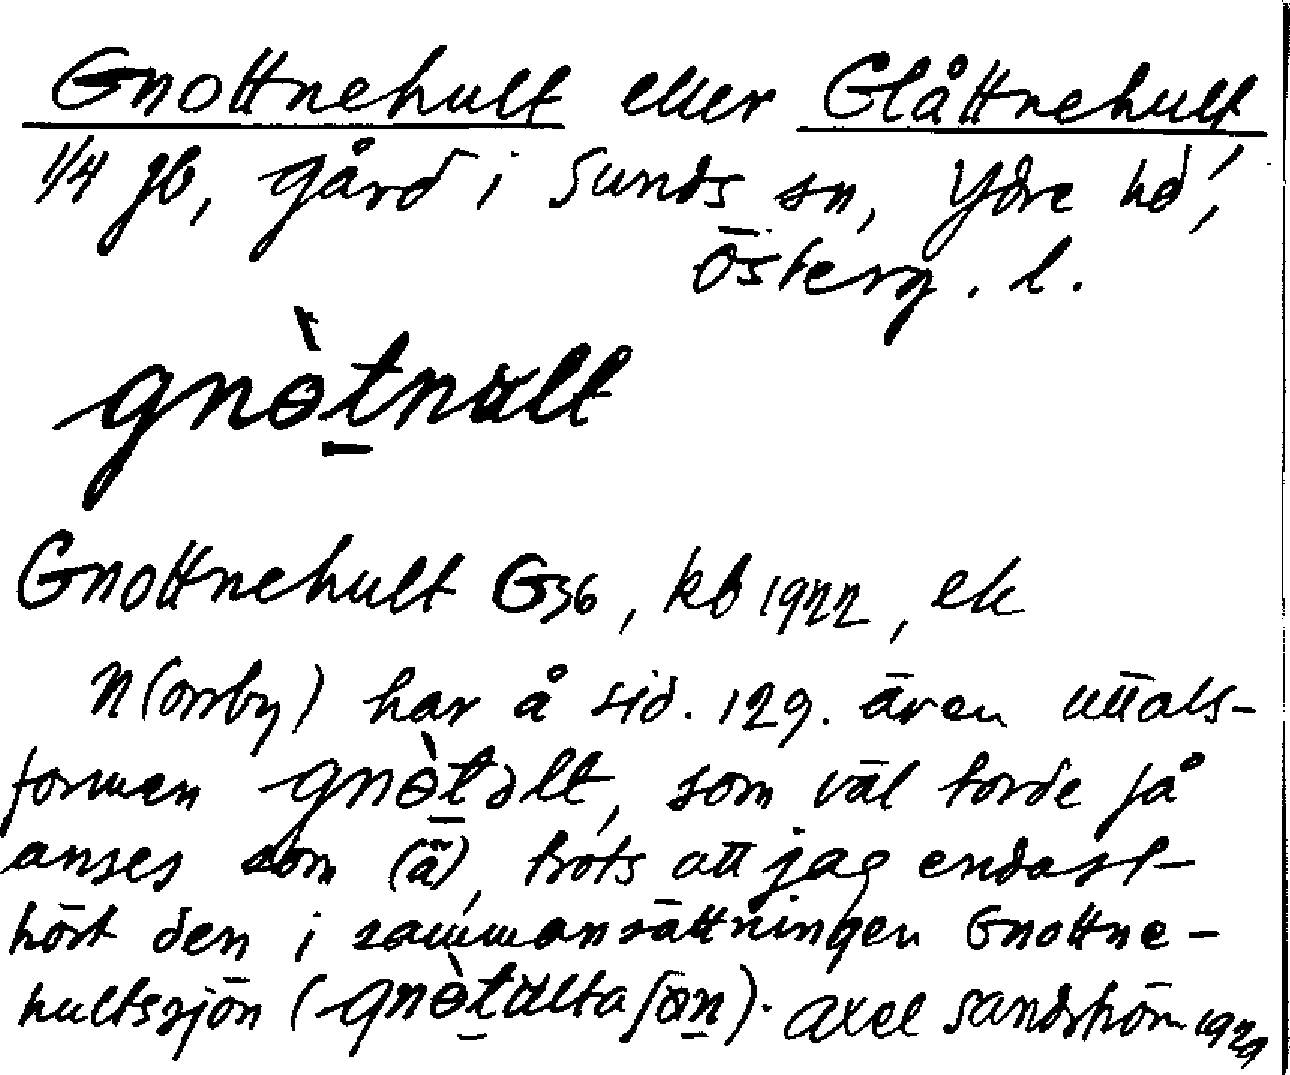 Gnottnehult eller Glåttnehult,
1/4 jb, gård i Sunds sn, Ydre hd,
Österg. l.
gnɵ̀t̲nɑllt
Gnottnehult G36, kb 1922, ek
N(orrby) har å sid. 129. även uttals-
formen gnɵ̀t̲ɔllt, som väl torde få
anses som (ä), trots att jag endast
hört den i sammansättningen Gnottne-
hultssjön (). Axel Sandström 1929